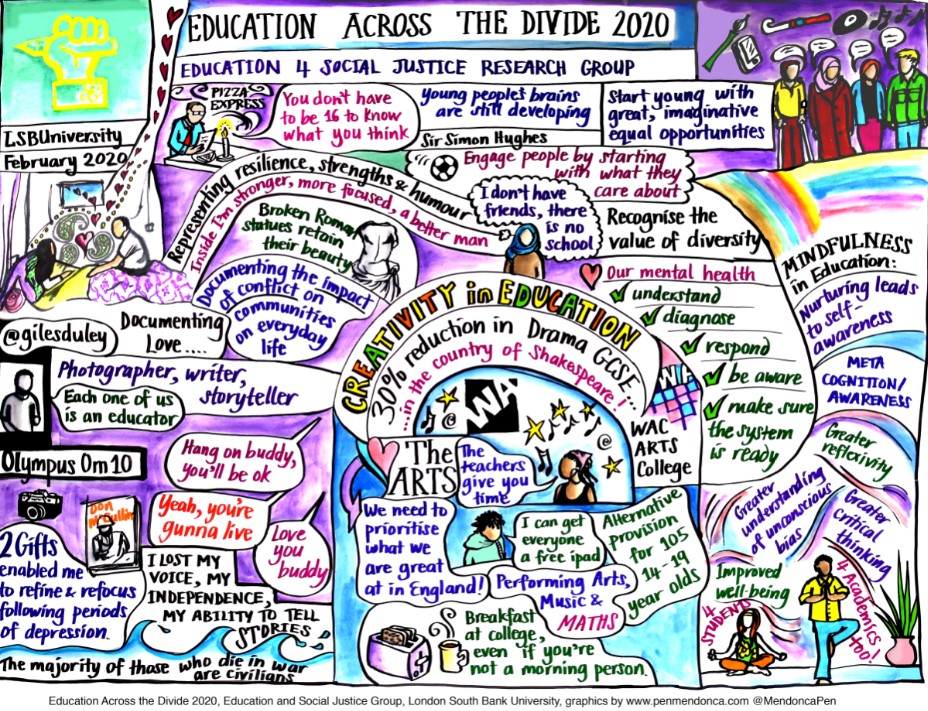 EDUCATION ACROSS THE DIVIDE 2020
EDUCATION 4 SOCIAL JUSTICE RESEARCH GROUP
LSBUniversity
February 2020
PIZZA
EXPRESS
You don't have
to be 16 to know
what you think
young people's brains
are still developing
Sir Simon Hughes
Start young with
great, imaginative
equal opportunities
Engage people by starting
with what they
care about
Representing resilience, strengths & humour
Inside I'm stronger, more focused, a better man
I don't have
friends, there
is no
school
Recognise the
value of diversity
Broken Roman
statues retain
their beauty
Documenting the impact
of conflict on
communities
on everyday
life
@gilesduley
Documenting
Love....
Photographer, writer,
storyteller
Each one of us
is an educator
Olympus Om10
Hang on buddy,
you'll be ok
Yeah, you're
gunna live
Love
you
buddy
Don
McCullin
2 Gifts
enabled me
to refine & refocus
following periods
of depression.
I LOST MY
VOICE, MY
INDEPENDENCE,
MY ABILITY TO TELL
STORIES
The majority of those who die in war
are civilians
CREATIVITY in EDUCATION
30% reduction in Drama GCSE
...in the country of Shakespeare!
WA
@
@
WA
WAC
ARTS
College
The
ARTS
The
teachers
give you
time
We need to
prioritise
what we
are great
at in England!
I can get
everyone
a free ipad
Alternative
provision
for 105
14-19
year olds
Performing Arts,
Music &
MATHS
Breakfast
at college,
even if you're
not a morning person.
Our mental health
understand
diagnose
respond
be aware
make sure
the system
is ready
MINDFULNESS
in Education:
Nurturing leads
to self-
awareness
META
COGNITION/
AWARENESS
Greater
reflexivity
Greater
understanding
of unconscious
bias
Greater
critical
thinking
Improved
well-being
4
STUDENTS
4 Academics
too!
Education Across the Divide 2020, Education and Social Justice Group, London South Bank University, graphics by www.penmendonca.com @MendoncaPen